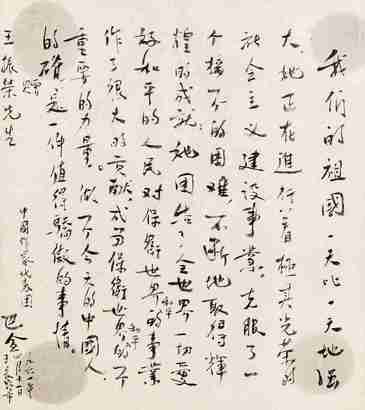 我们的祖國一天比一天地强
大她正在進行着極其光荣的
社会主义建設事業。克服了一
个接一个的困难，不断地取得輝
煌的成就；她团结了全世界一切爱
好和平的人民对保衛世界和平的事業
作了很大的贡献，成为保衛世界和平的一个
重要的力量。做一个今天的中國人
的确是一件值得驕傲的事情。
赠
王振荣先生
中国作家代表团
巴金
一九六一年